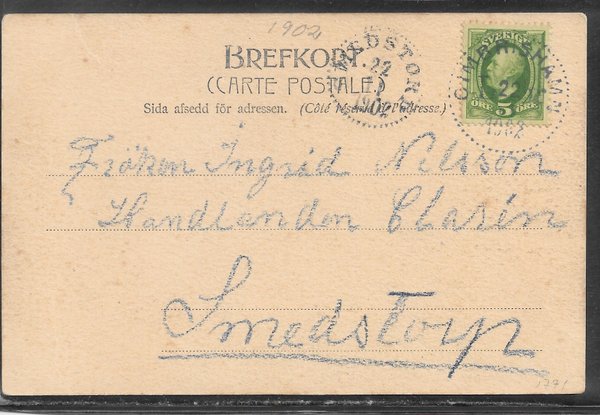 1902
BREFKORT.
(CARTE POSTALE.)
Sida afsedd för adressen. (Côté réservé à l'adresse.)
SMEDSTORP
22
1902
SVERIGE
5
ÖRE ÖRE
CIMBRISHAMN
22
1902
Fröken Ingrid Nilsson
Handlanden Clarin
Smedstorp
1391